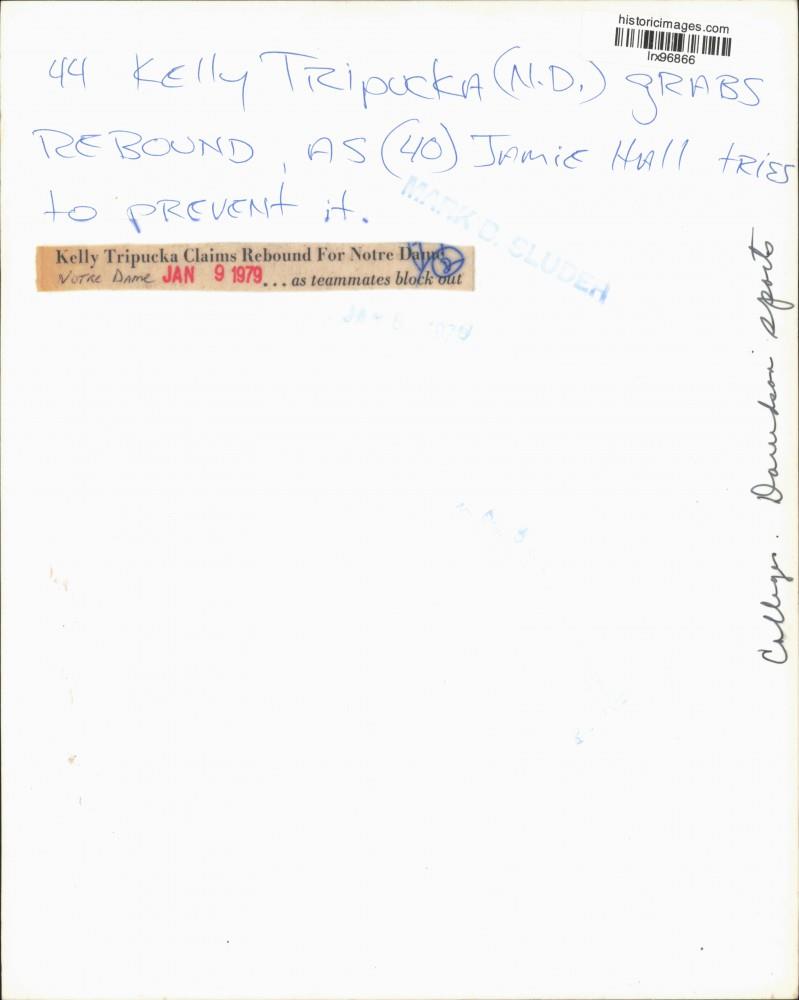 historicimages.com
lrx96866
44 Kelly Tripucka (N.D.) grabs
REBOUND, AS (40) Jamie Hall tries
to prevent it.
MARK B. SLUDER
Kelly Tripucka Claims Rebound For Notre Dame
Notre Dame JAN 9 1979 ... as teammates block out
Colleges. Davidson sports